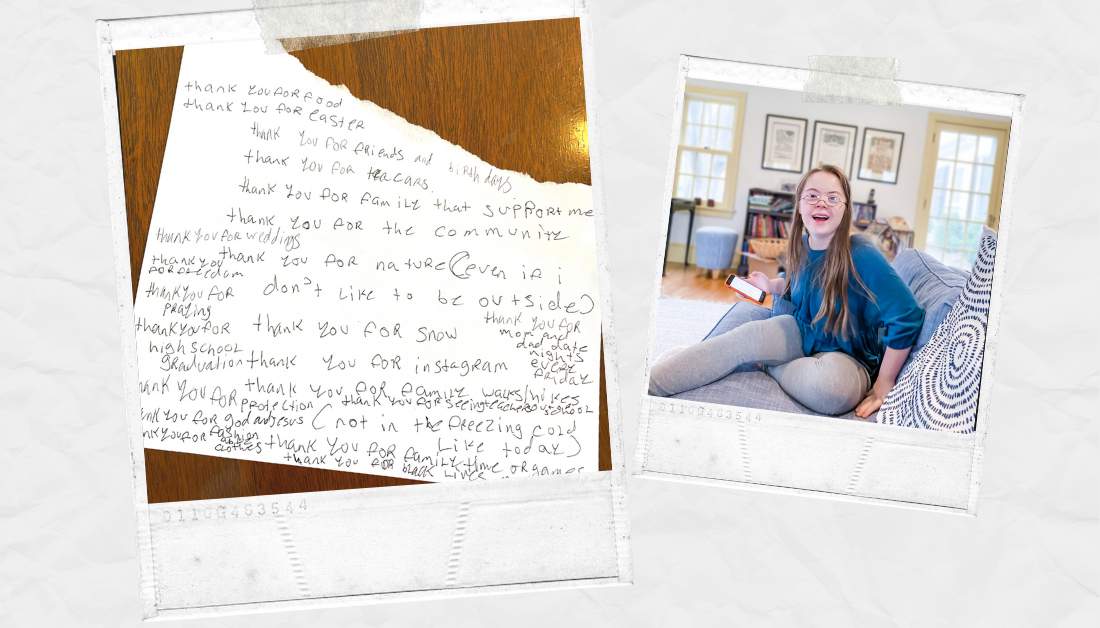 thank you for food
thank you for easter
thank you for friends and birthdays
thank you for tea cars.
thank you for family that support me
thank you for the community
thank you for weddings
thank you for freedom
thank you for nature (even if i
don't like to be outside)
thank you for
praying
thank you for snow
thank you for
mom and
dad date
nights
every
friday
thank you for
high school
graduation
thank you for instagram
thank you for family walks/hikes
(not in the freezing cold
like today)
thank you for
projection
thank you for seeing teachers school
you for god and jesus
you for fashion
clothes
thank you for family time or games
thank you for black lives
0110G463544
0110G463544